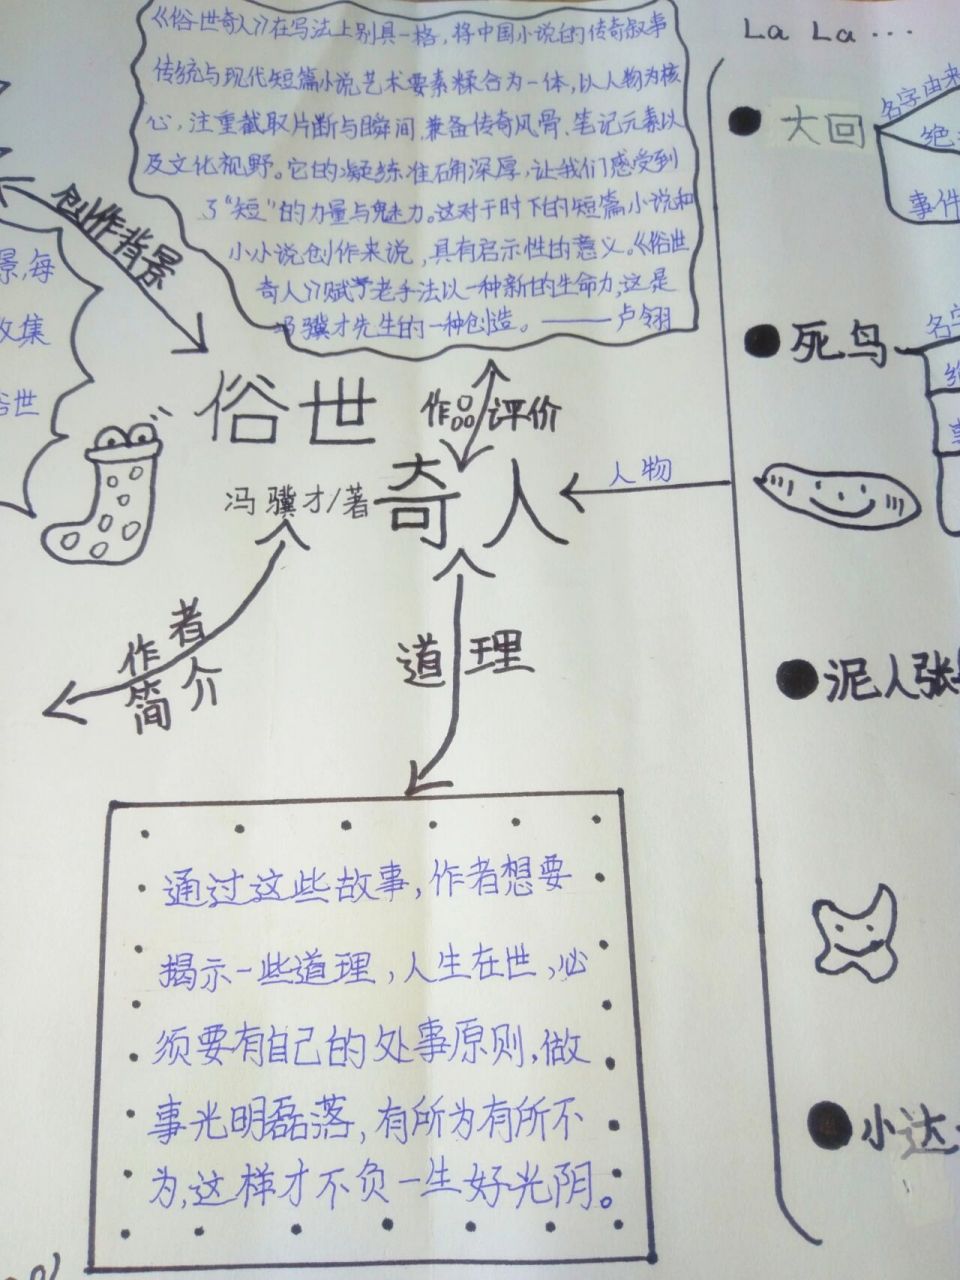 《俗世奇人》在写法上别具一格，将中国小说的传奇叙事
传统与现代短篇小说艺术要素糅合为一体，以人物为核
心，注重截取片断与瞬间，兼备传奇风骨、笔记元素以
及文化视野。它的凝练准确深厚，让我们感受到
了“短”的力量与魅力。这对于时下的短篇小说和
小小说创作来说，具有启示性的意义。《俗世
奇人》赋予老手法以一种新的生命力，这是
冯骥才先生的一种创造。——卢翎
La La ...
大回
名字由来
绝
事件
创作背景
景，每
收集
俗世
死鸟
名字
绝
事
俗世
作品评价
奇人
冯骥才/著
人物
作者
简介
道理
泥人张
通过这些故事，作者想要
揭示一些道理，人生在世，必
须要有自己的处事原则，做
事光明磊落，有所为有所不
为，这样才不负一生好光阴。
小达